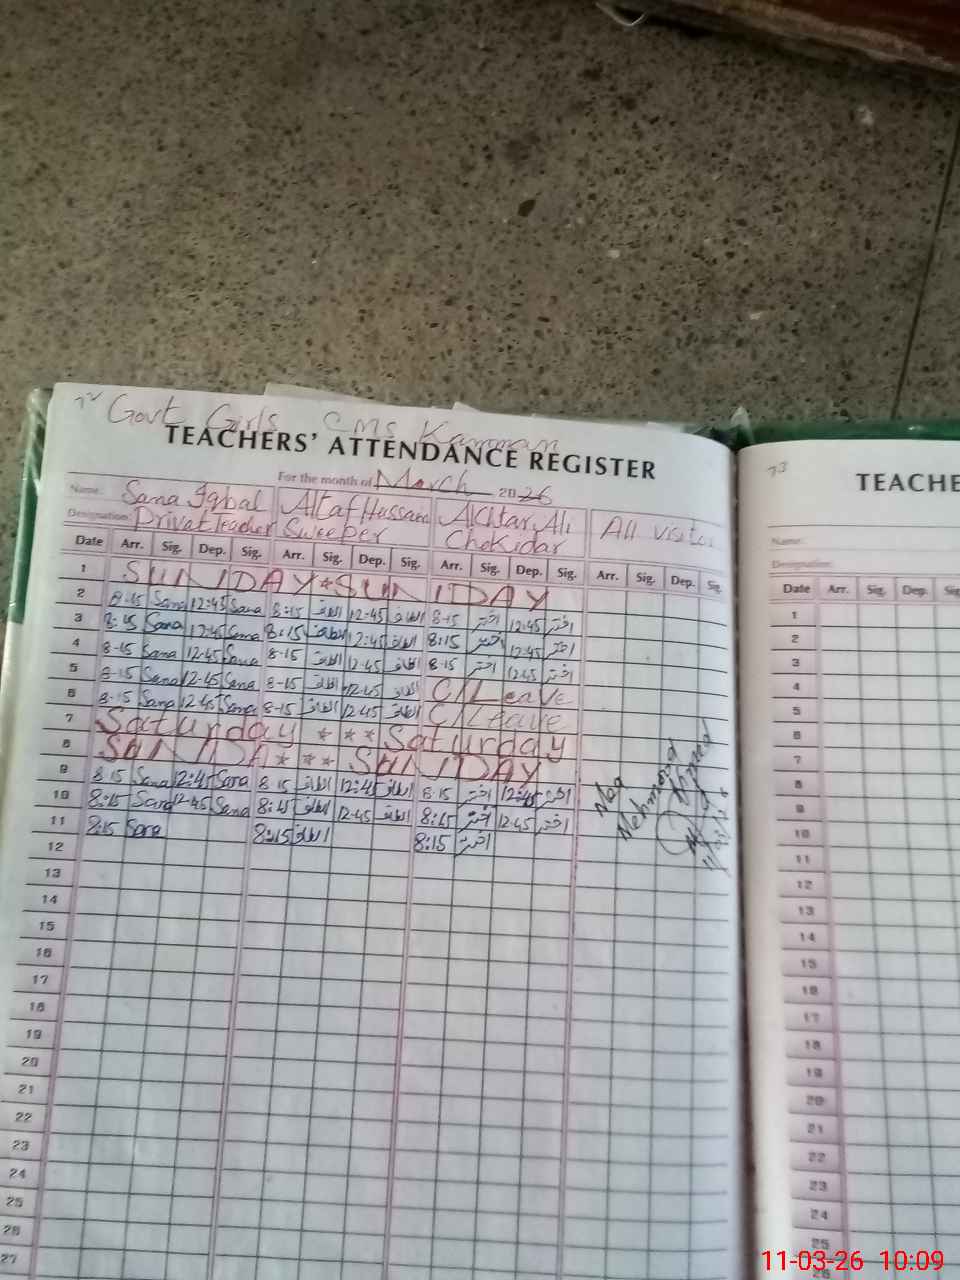 72 Govt Girls CMS Kamman
TEACHERS' ATTENDANCE REGISTER
For the month of March 2026
Name: Sana Iqbal Altaf Hussain Akhtar Ali All visitor
Designation: Privat teacher Sweeper Chokidar
Date Arr. Sig. Dep. Sig. Arr. Sig. Dep. Sig. Arr. Sig. Dep. Sig. Arr. Sig. Dep. Sig.
1 SUNDAY * SUNDAY
2 8-15 Sana 12:45 Sana 8-15 الطاف 12-45 الطاف 8-15 اختر 12-45 اختر
3 8:15 Sana 12-45 Sana 8:15 الطاف 12:45 الطاف 8:15 اختر 12:45 اختر
4 8-15 Sana 12-45 Sana 8-15 الطاف 12-45 الطاف 8-15 اختر 12-45 اختر
5 8-15 Sana 12-45 Sana 8-15 الطاف 12-45 الطاف C/Leave
6 8-15 Sana 12-45 Sana 8-15 الطاف 12-45 الطاف C/Leave
7 Saturday * * * Saturday
8 SUNDA * * * SUNDAY
9 8-15 Sana 12:45 Sana 8-15 الطاف 12:45 الطاف 8-15 اختر 12:45 اختر
10 8:15 Sana 12-45 Sana 8:15 الطاف 12-45 الطاف 8:15 اختر 12-45 اختر
11 8:15 Sana 8:15 الطاف 8:15 اختر
12
13
14
15
16
17
18
19
20
21
22
23
24
25
26
27
Mea
Mehmood
Ahmed
73
TEACHE
Name:
Designation:
Date Arr. Sig. Dep. Sig.
1
2
3
4
5
6
7
8
9
10
11
12
13
14
15
16
17
18
19
20
21
22
23
24
25
26
11-03-26 10:09